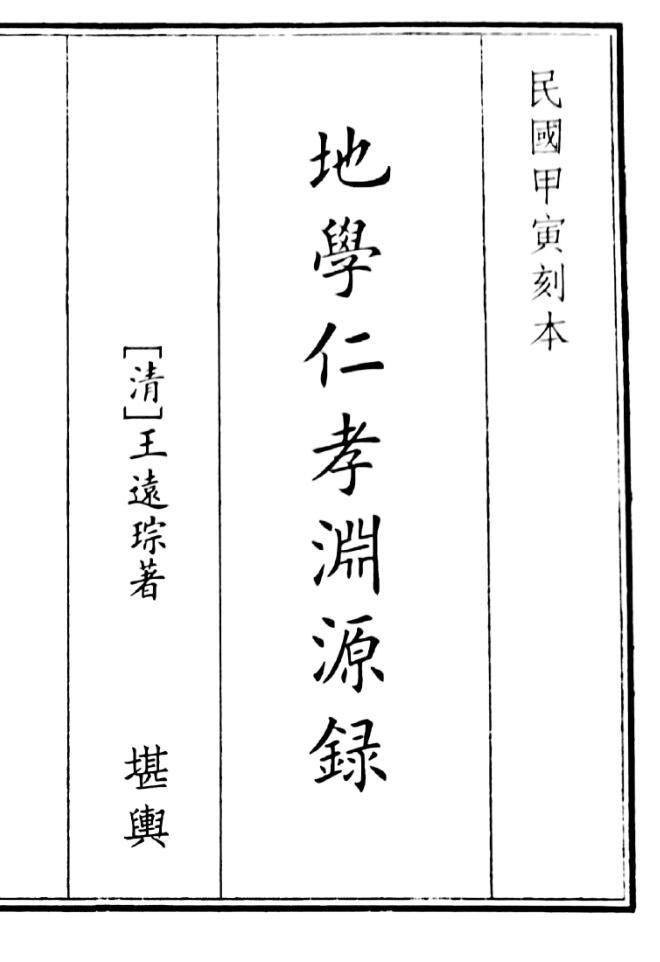 民國甲寅刻本
地學仁孝淵源録
[清]王遠琮著
堪輿